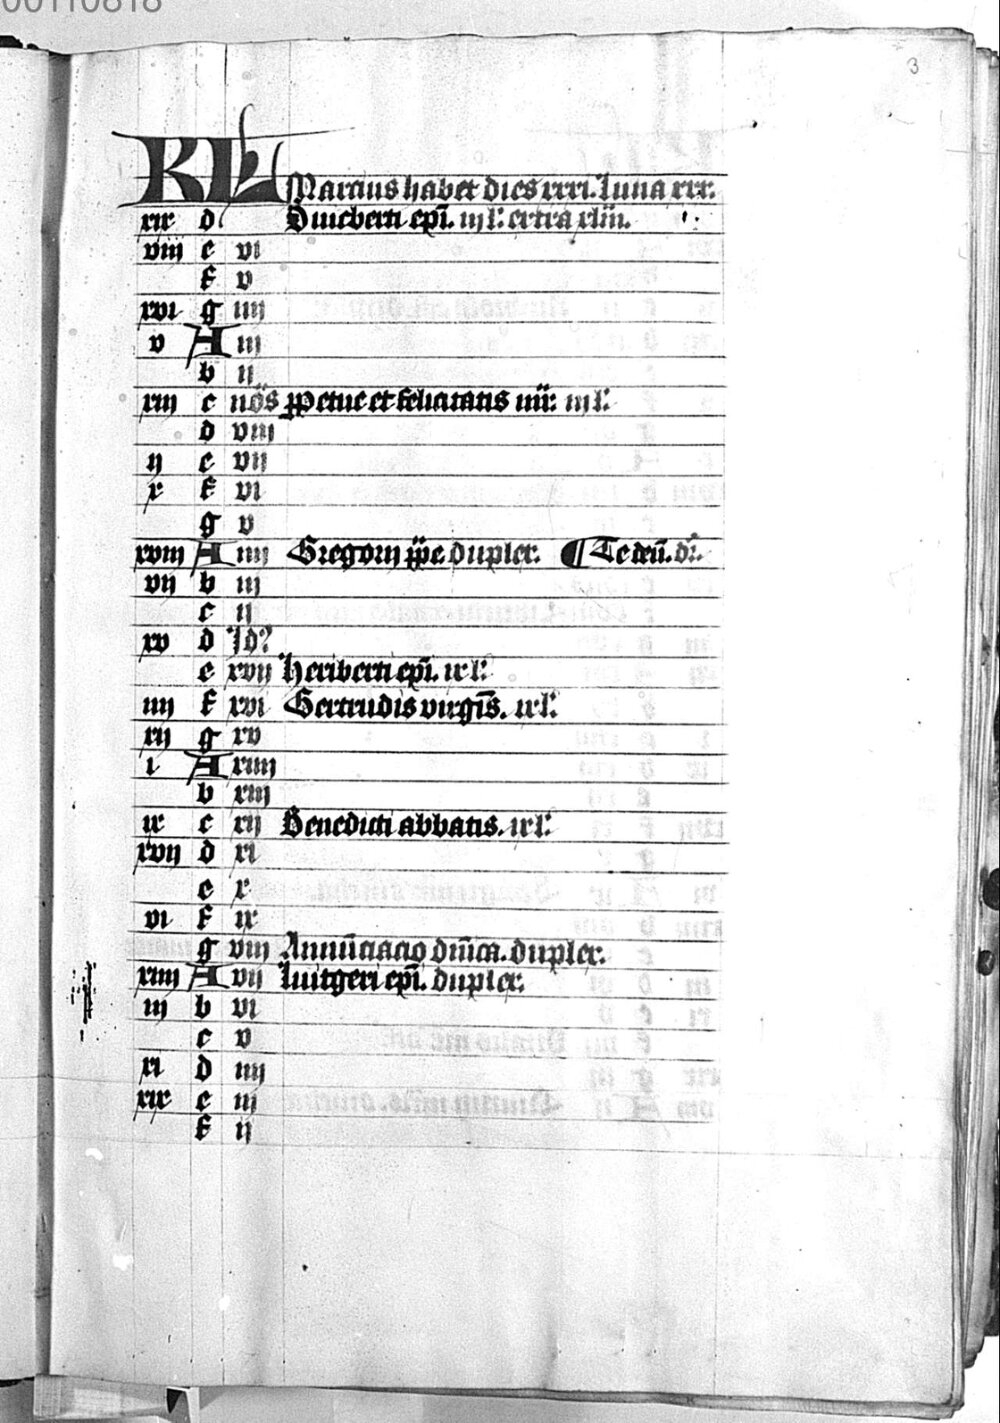 00110818
3
KL Marcius habet dies xxxi. luna xxx.
xix d Suicberti epi. iij l. extra xlm.
viij e vi
f v
xvi g iiij
v A iij
b ij
xiij c nos ppetue et felicitatis mr. iij l.
d viij
ij e vij
x f vi
g v
xviij A iiij Gregorij ppe. duplex. ¶ Te deu. dr.
vij b iij
c ij
xv d Id
e xvij heriberti epi. ix l.
iiij f xvi Gertrudis virgis. ix l.
xij g xv
i A xiiij
b xiij
ix c xij Benedicti abbatis. ix l.
xvij d xi
e x
vi f ix
g viij Annuciacio dnica. duplex.
xiiij A vij luitgeri epi. duplex.
iij b vi
c v
xi d iiij
xix e iij
f ij